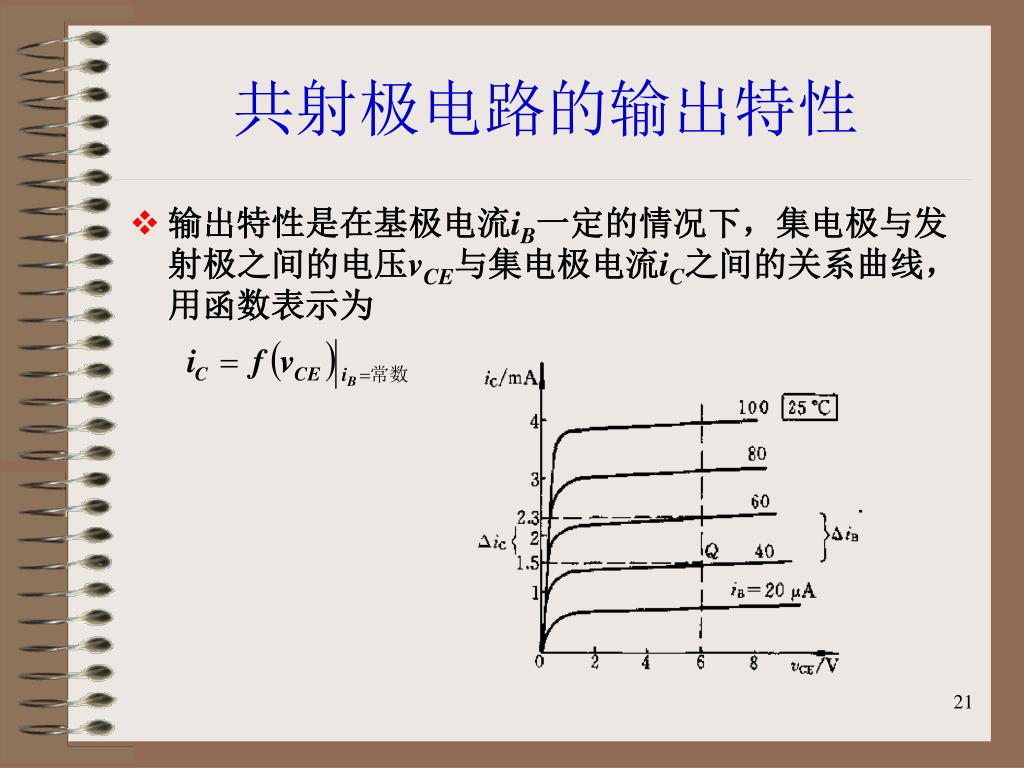 共射极电路的输出特性
❖ 输出特性是在基极电流iB一定的情况下，集电极与发
射极之间的电压vCE与集电极电流iC之间的关系曲线，
用函数表示为
iC = f(vCE)|iB=常数
iC/mA
100 25 ℃
4
80
3
60
2.3
ΔiC { 2 } ΔiB
Q 40
1.5
1 iB=20 μA
0 2 4 6 8 vCE/V
21